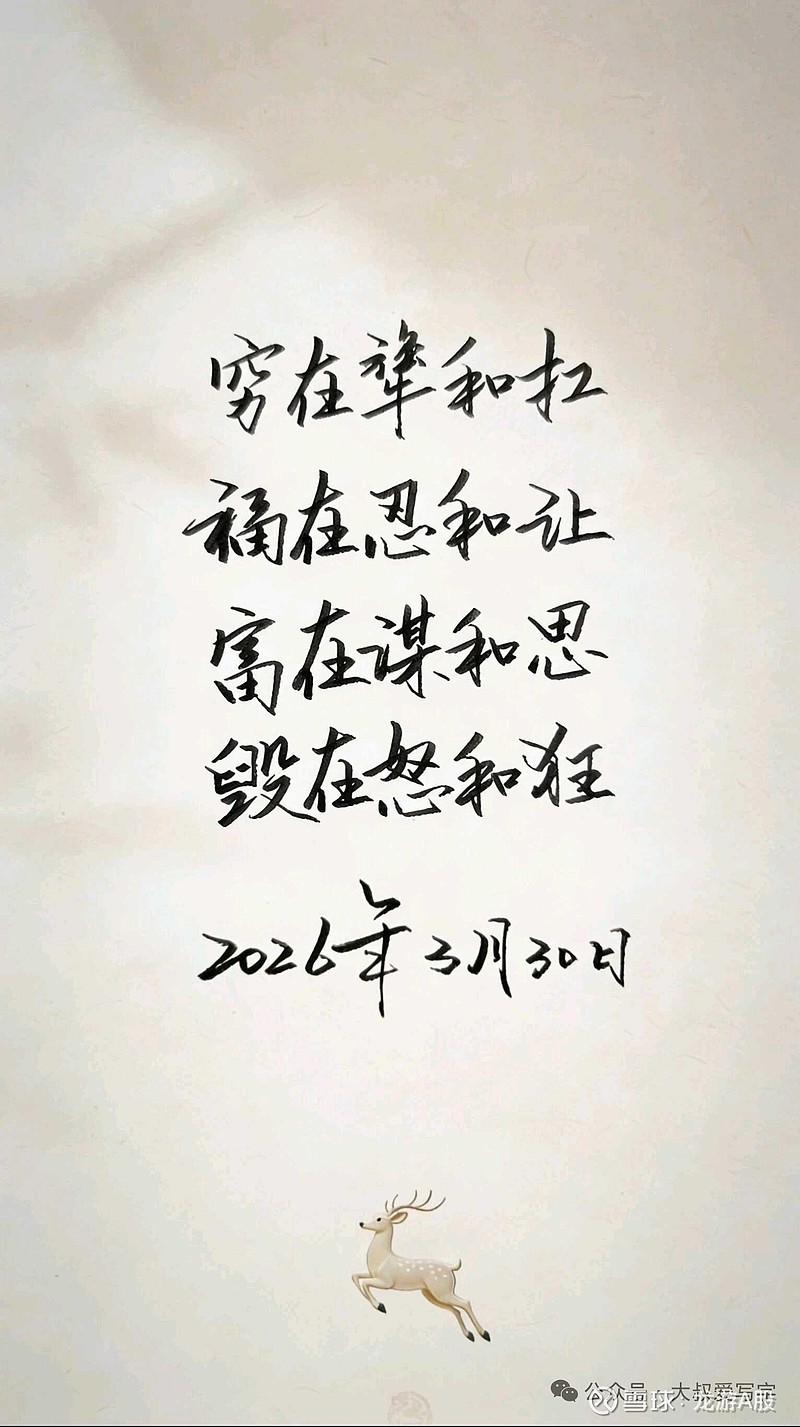 穷在犟和扛
福在忍和让
富在谋和思
毁在怒和狂
2026年3月30日
公众号 · 大叔爱写字
雪球·龙游A股